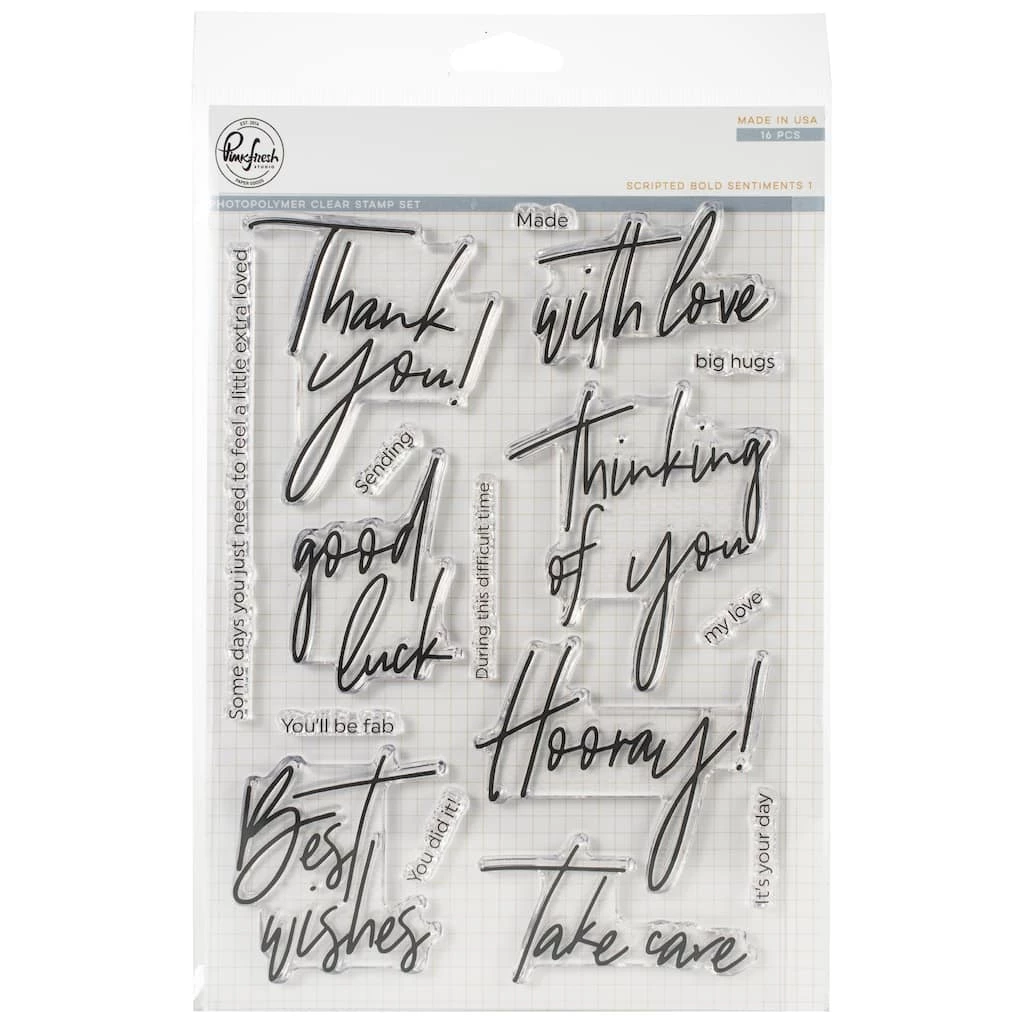 EST. 2014
Pinkfresh
STUDIO
PAPER GOODS
MADE IN USA
16 PCS
SCRIPTED BOLD SENTIMENTS 1
PHOTOPOLYMER CLEAR STAMP SET
Some days you just need to feel a little extra loved
Thank
you!
Made
with love
big hugs
Sending
thinking
of you
good
luck
During this difficult time
my love
You'll be fab
Hooray!
Best
wishes
You did it!
It's your day
Take care